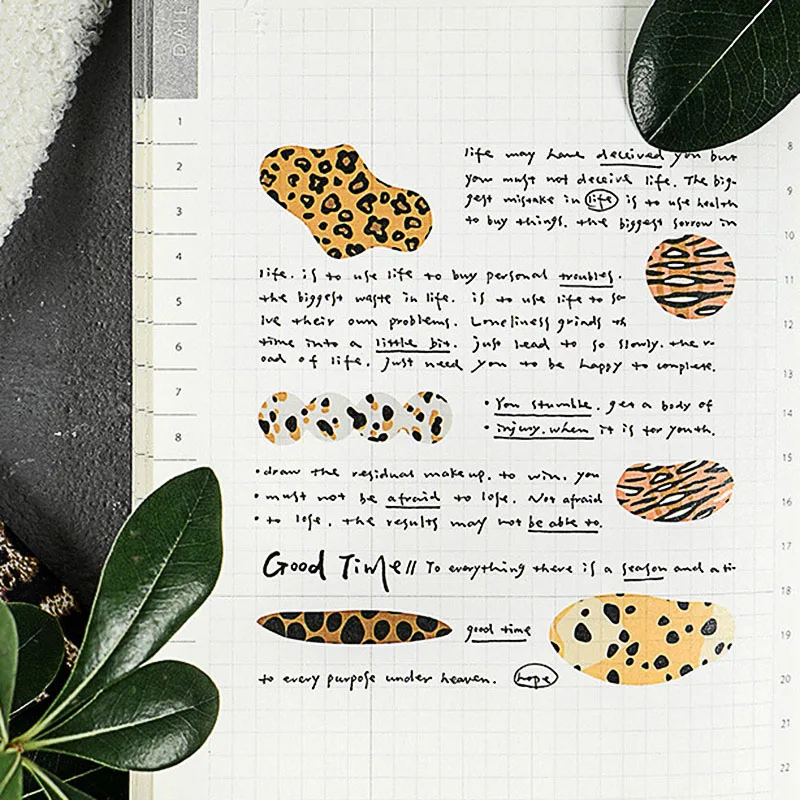 DAIL
1
2
3
4
5
6
7
8
8
9
10
11
12
13
14
15
16
17
18
19
20
22
life may have deceived you but
you must not deceive life. The big-
gest mistake in life is to use health
to buy things. the biggest sorrow in
life. is to use life to buy personal troubles.
the biggest waste in life. is to use life to so-
lve their own problems. Loneliness grinds th
time into a little bit. just lead to so slowly. the r-
oad of life. just need you to be happy to complete.
• You stumble. get a body of
• injury. when it is for youth.
• draw the residual makeup. to win. you
• must not be afraid to lose. Not afraid
• to lose. the results may not be able to.
Good Time // To everything there is a season and a ti-
good time
to every purpose under heaven. hope